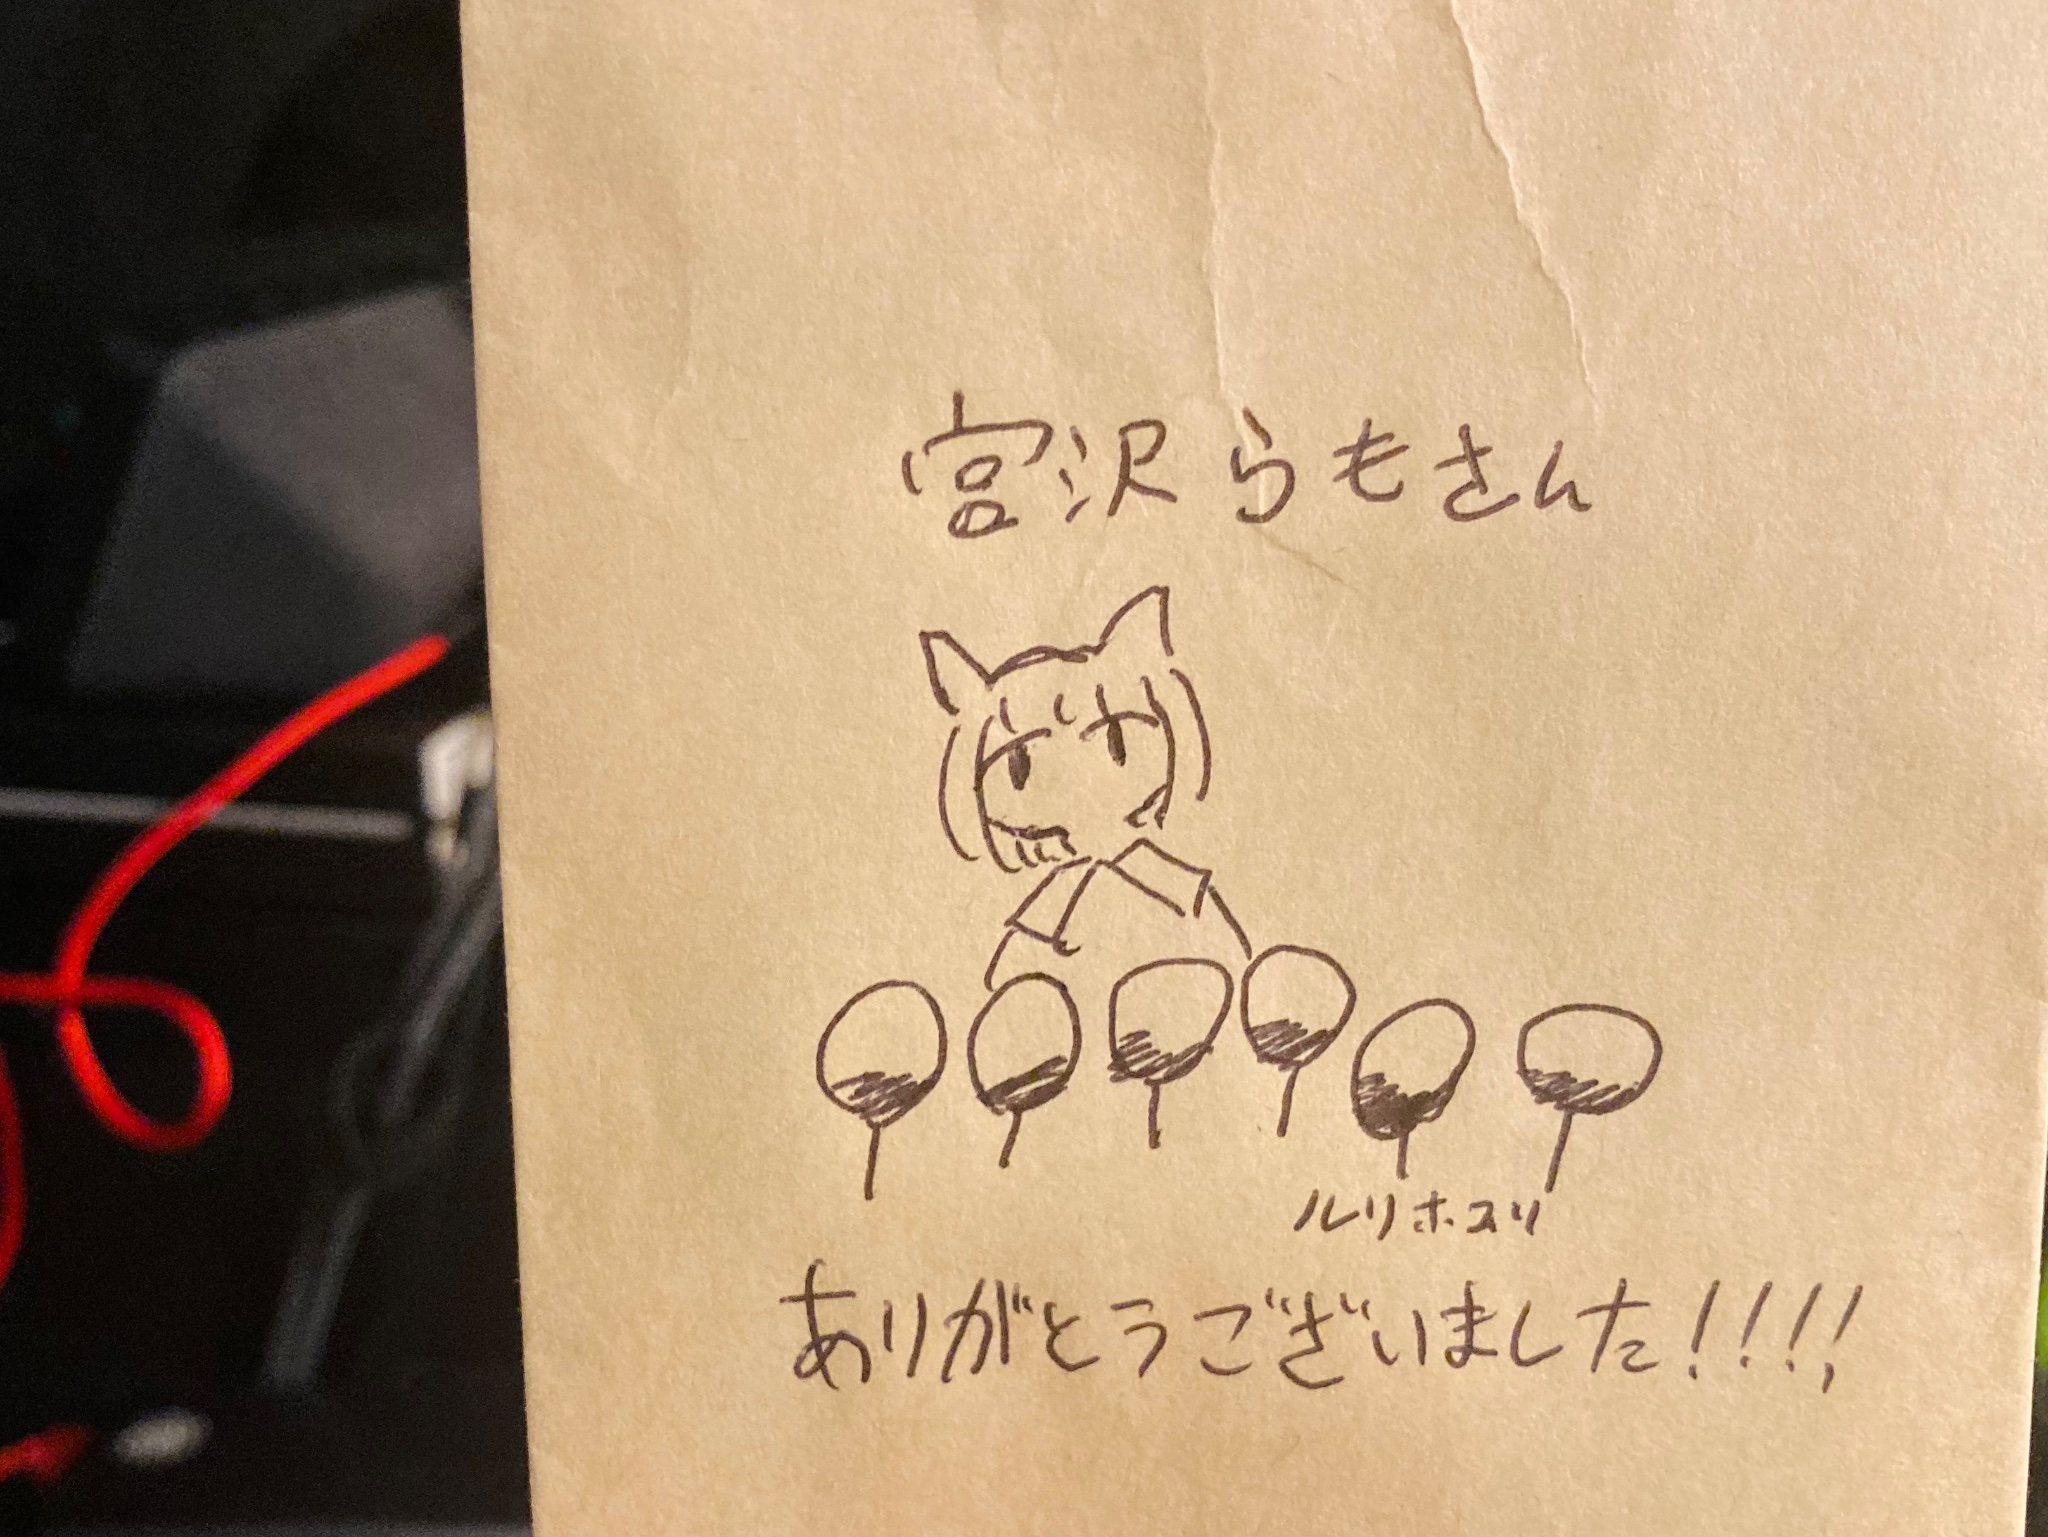 宮沢らもさん
ルリホスリ
ありがとうございました!!!!